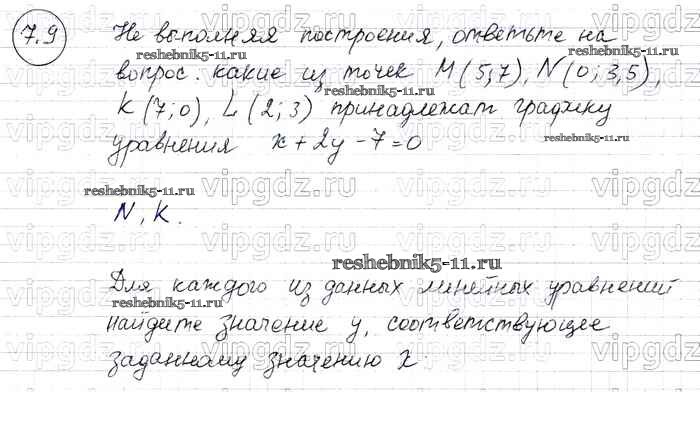 7.9
Не выполняя построения, ответьте на
вопрос. какие из точек M(5;7), N(0;3,5),
K(7;0), L(2;3) принадлежат графику
уравнения x+2y-7=0
N, K.
Для каждого из данных линейных уравнений
найдите значение y, соответствующее
заданному значению x
vipgdz.ru
reshebnik5-11.ru